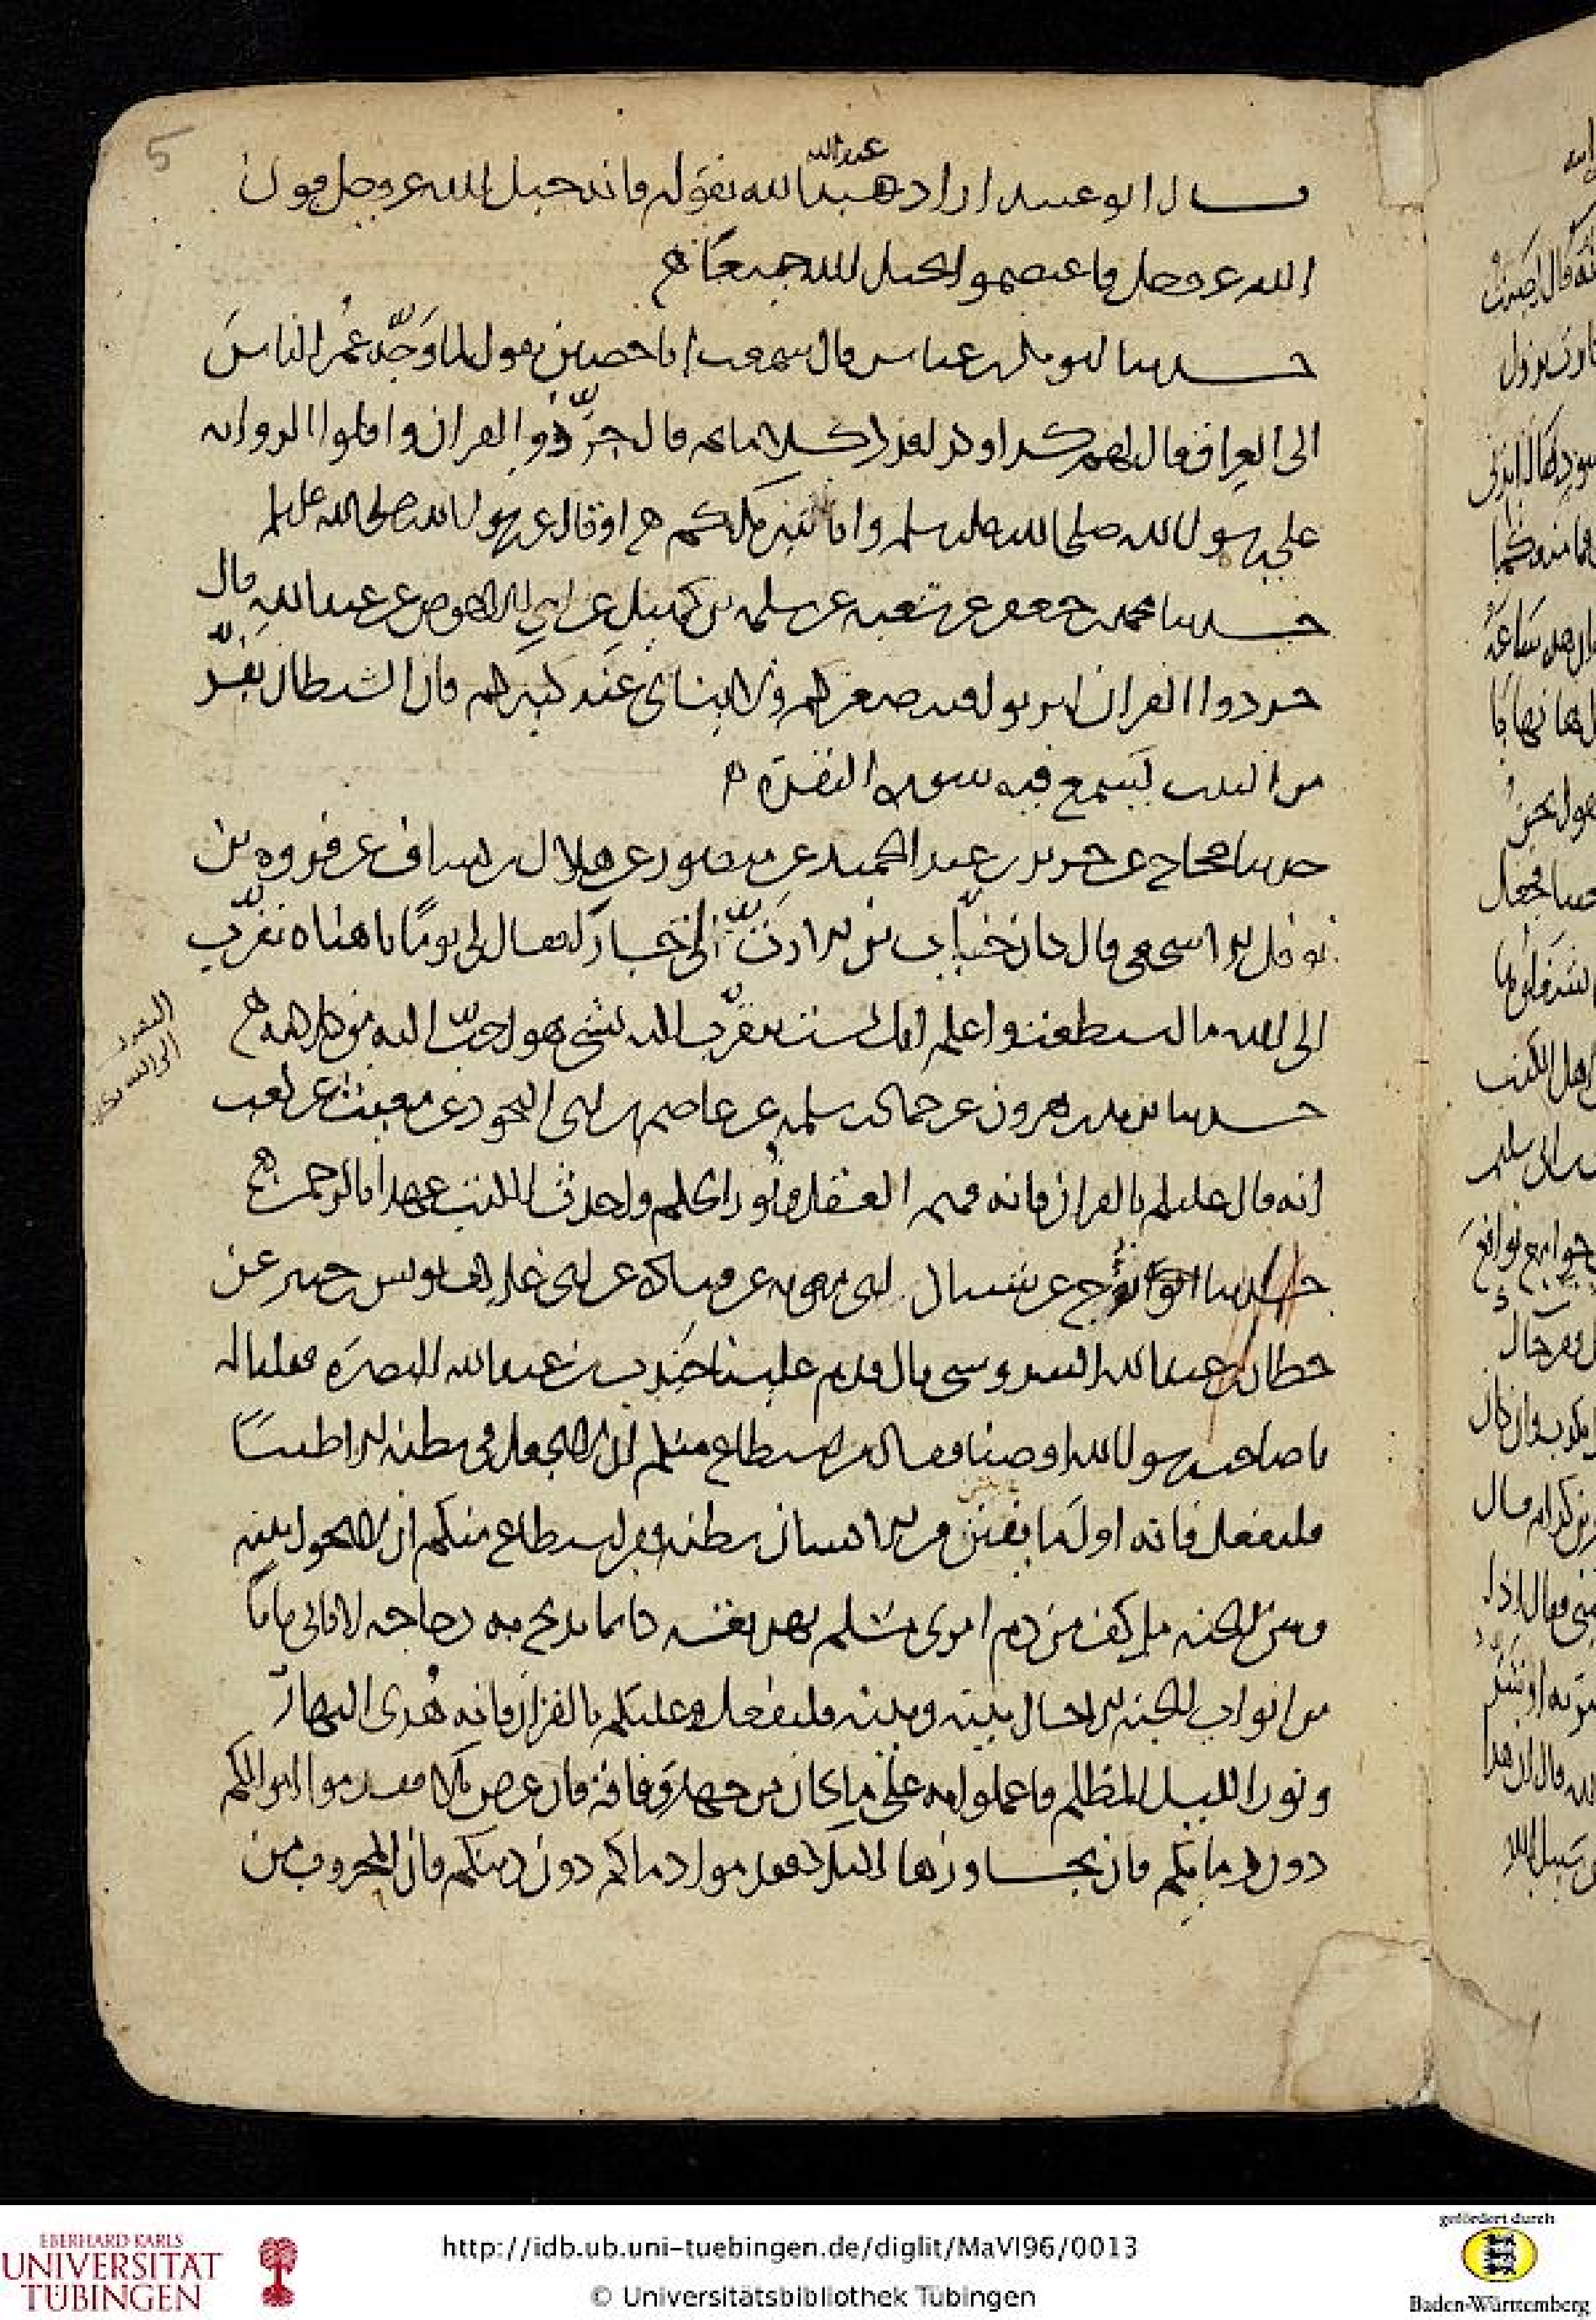 5
عبد الله
قال ابو عبيد اراد هبد الله بقوله فانه حبل الله عز وجل قول
الله عز وجل واعتصموا بحبل الله جميعا ه
حدثنا ابو بكر بن عياش قال سمعت ابا حصين يقول لما وجّه عمر الناس
الى العراق فقال لهم كذا وكذا لقد ذكر كلاما ثم قال جرّدوا القران واقلوا الرواية
على رسول الله صلى الله عليه وسلم وانا شريككم ه او قال عن رسول الله صلى الله عليه وسلم
حدثنا محمد بن جعفر عن شعبه عن سلمه بن كهيل عن ابي الاحوص عن عبد الله قال
جردوا القران ليربو فيه صغيركم ولا ينأى عنه كبيركم فان الشيطان يفرّ
من البيت يسمع فيه سورة البقرة ه
حدثنا حجاج عن جرير بن عبد الحميد عن منصور عن هلال بن يساف عن فروه بن
نوفل الاشجعي قال كان خبّاب بن الارتّ لي جارا فقال لي يوما يا هناه تقرّب
الى الله ما استطعت واعلم انك لست تتقرّب اليه بشي هو احبّ اليه من كلامه ه
التقرب
الى الله
حدثنا يزيد بن هرون عن حماد بن سلمه عن عاصم بن ابي النجود عن مغيث عن كعب
انه قال عليكم بالقران فانه فهم العقل ونور الحكم واحدث الكتب عهدا بالرحمن ه
حدثنا ابو نوح عن شبيان ابي معويه عن قتاده عن ابي غلاب يونس بن جبير عن
حطان بن عبد الله السدوسي قال قدم علينا جندب بن عبد الله البصره فقلنا له
يا صاحب رسول الله اوصنا فقال من استطاع منكم ان لا يجعل في بطنه الا طيبا
فليفعل فانه اول ما ينتن من الانسان بطنه ومن استطاع منكم ان لا يحول بينه
وبين الجنه مل كف من دم امرى مسلم يهريقه كانما يذبح به دجاجه لا ياتي بابا
من ابواب الجنه الا حال بينه وبينه فليفعل وعليكم بالقران فانه هدى النهار
ونور الليل المظلم فاعملوا به على ما كان من جهد وفاقه فان عرض بلا فقدموا اموالكم
دون دمايكم فان تجاوزها البلا فقدموا دماكم دون دينكم فان المحروب من
EBERHARD KARLS
UNIVERSITÄT
TÜBINGEN
http://idb.ub.uni-tuebingen.de/diglit/MaVI96/0013
© Universitätsbibliothek Tübingen
gefördert durch
Baden-Württemberg